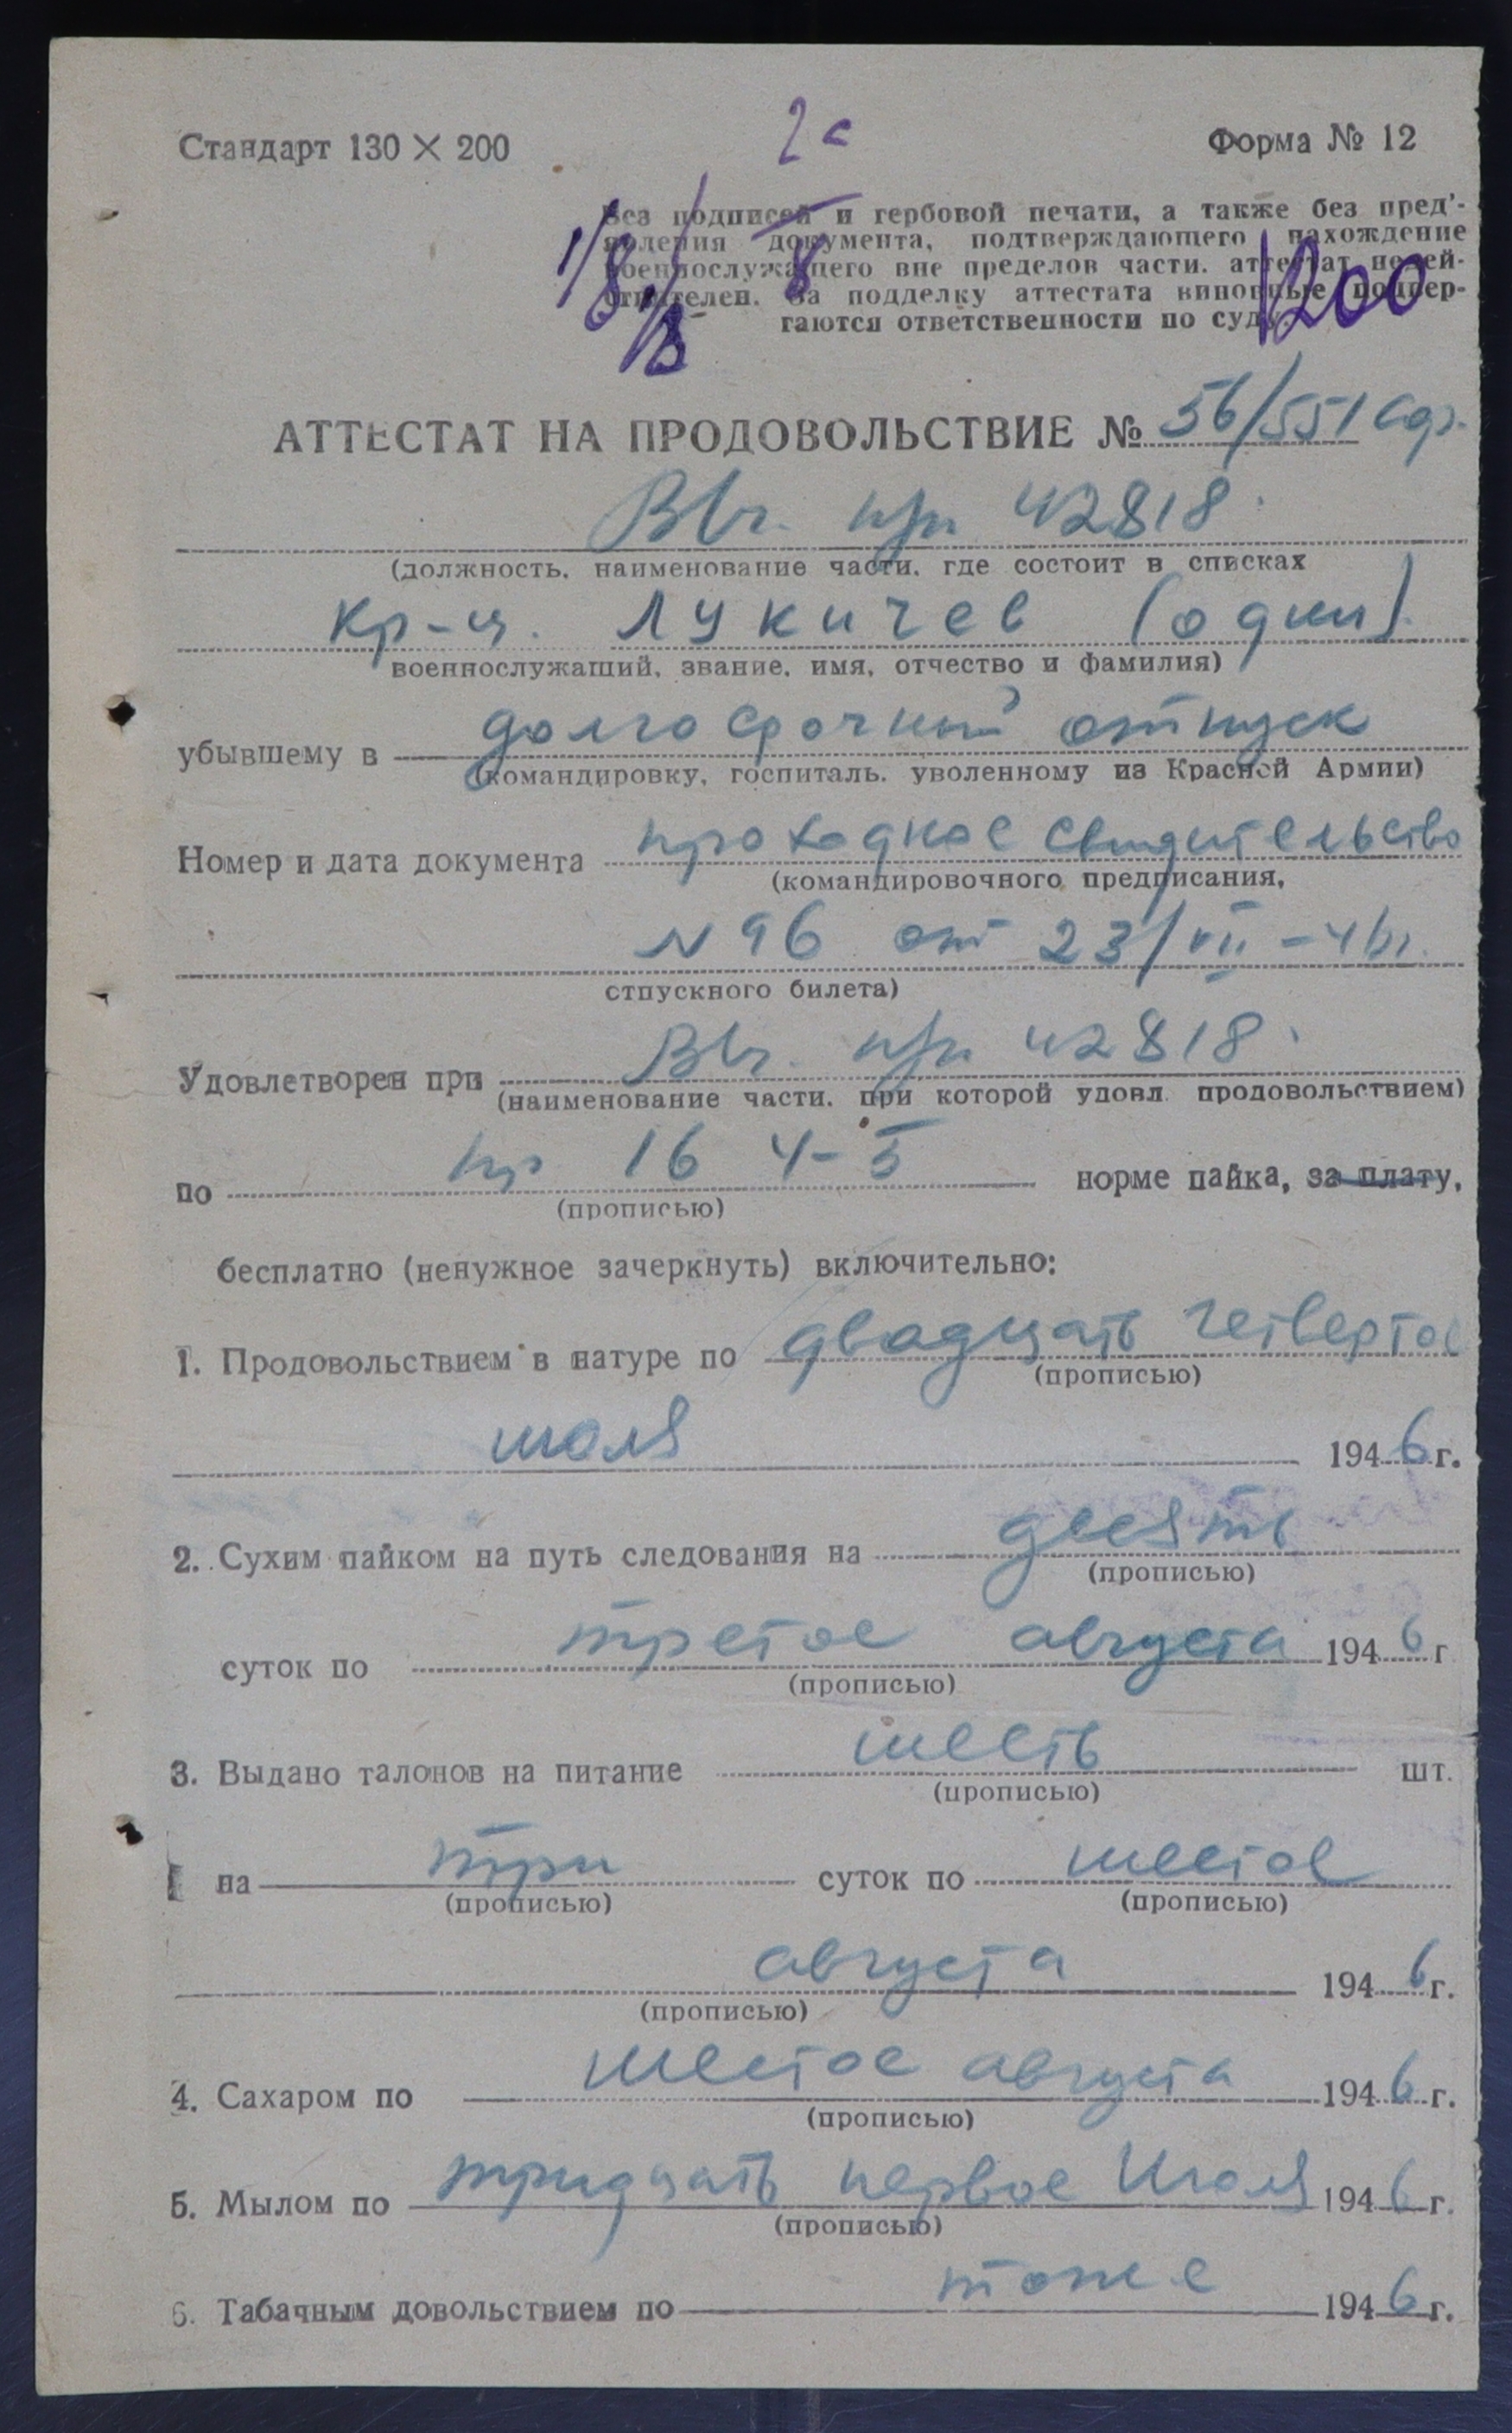 Стандарт 130 × 200
2с
Форма № 12
Без подписей и гербовой печати, а также без пред'-
явления документа, подтверждающего нахождение
военнослужащего вне пределов части. аттестат недей-
ствителен. За подделку аттестата виновные подвер-
гаются ответственности по суду.
1/8
8
1/8
1200
АТТЕСТАТ НА ПРОДОВОЛЬСТВИЕ № 56/551
В/ч. п/п 42818
(должность. наименование части. где состоит в списках
Кр-ц. Лукичев (один)
военнослужащий, звание, имя, отчество и фамилия)
убывшему в долгосрочный отпуск
(командировку, госпиталь. уволенному из Красной Армии)
Номер и дата документа проходное свидительство
(командировочного предписания,
N 96 от 23/VII-46г.
отпускного билета)
Удовлетворен при В/ч. п/п 42818
(наименование части. при которой удовл. продовольствием)
по пр 16 4-5 норме пайка, за плату,
(прописью)
бесплатно (ненужное зачеркнуть) включительно:
1. Продовольствием в натуре по двадцать четвертое
(прописью)
июля 1946г.
2. Сухим пайком на путь следования на десять
(прописью)
суток по третое августа 1946 г
(прописью)
3. Выдано талонов на питание шесть шт.
(прописью)
на три суток по шестое
(прописью) (прописью)
августа 1946г.
(прописью)
4. Сахаром по шестое августа 1946г.
(прописью)
5. Мылом по тридцать первое Июля 1946г.
(прописью)
6. Табачным довольствием по тоже 1946г.